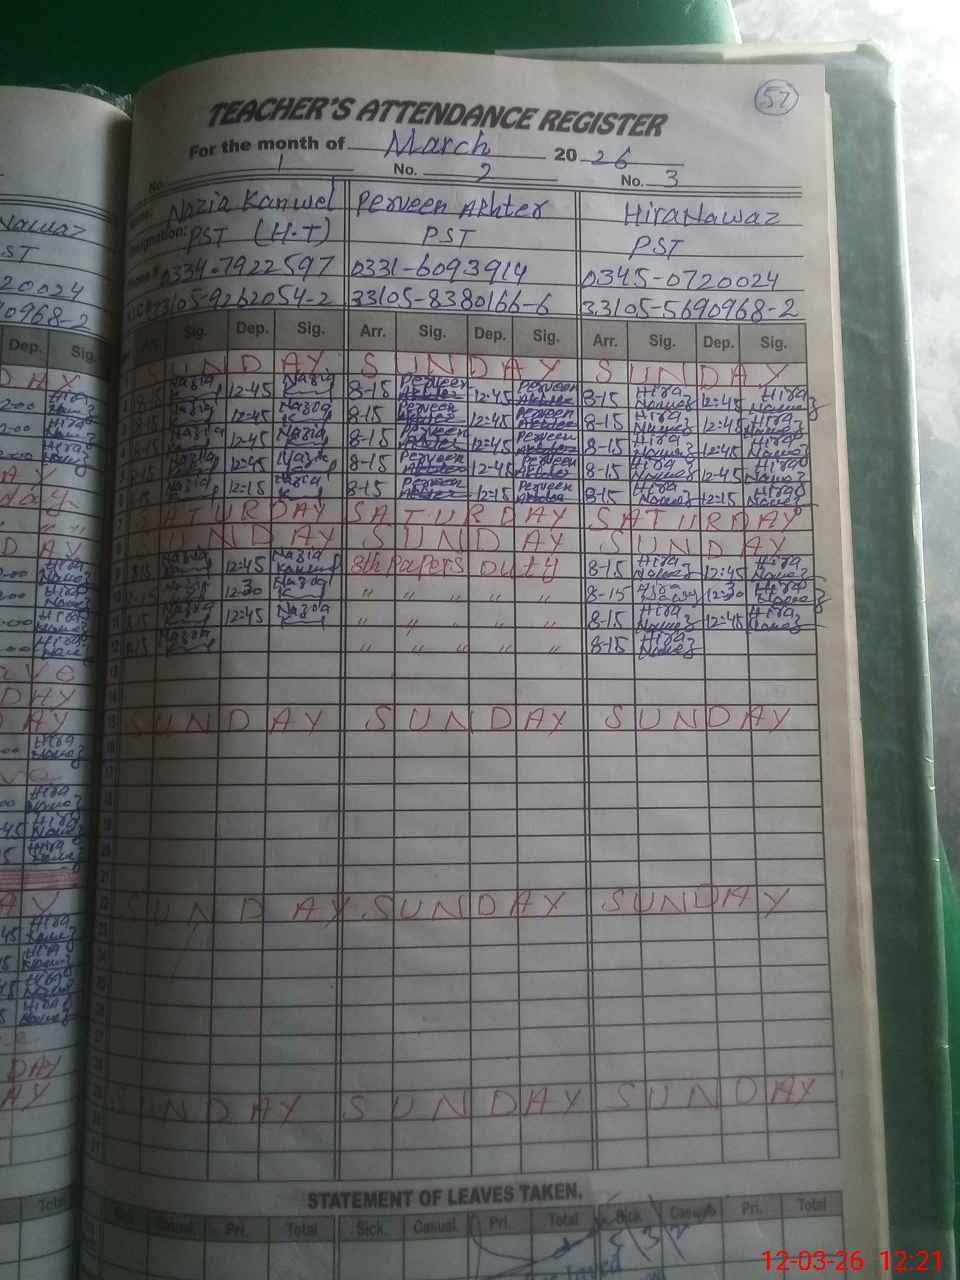 57
TEACHER'S ATTENDANCE REGISTER
For the month of March 20 26
No. 1 No. 2 No. 3
Nazia Kanwel Perveen Akhter Hira Nawaz
Designation: PST (H-T) PST PST
0334-7922597 0331-6093914 0345-0720024
33105-9262054-2 33105-8380166-6 33105-5690968-2
Arr. Sig. Dep. Sig. Arr. Sig. Dep. Sig. Arr. Sig. Dep. Sig.
1 SUNDAY SUNDAY SUNDAY
2 8-15 Nazia 12-45 Nazia 8-15 Perveen Akhter 12:45 Perveen Akhter 8-15 Hira Nawaz 12:45 Hira Nawaz
3 8-15 Nazia 12:45 Nazia 8-15 Perveen Akhter 12:45 Perveen Akhter 8-15 Hira Nawaz 12:45 Hira Nawaz
4 8-15 Nazia 12:45 Nazia 8-15 Perveen Akhter 12:45 Perveen Akhter 8-15 Hira Nawaz 12:45 Hira Nawaz
5 8-15 Nazia 12:45 Nazia 8-15 Perveen Akhter 12-45 Perveen Akhter 8-15 Hira Nawaz 12-45 Hira Nawaz
6 8-15 Nazia 12:15 Nazia 8-15 Perveen Akhter 12:15 Perveen Akhter 8-15 Hira Nawaz 12:15 Hira Nawaz
7 SATURDAY SATURDAY SATURDAY
8 SUNDAY SUNDAY SUNDAY
9 8-15 Nazia 12:45 Nazia Kanwel 8th Papers Duty 8-15 Hira Nawaz 12:45 Hira Nawaz
10 8-15 Nazia 12-30 Nazia " " " " " 8-15 Hira Nawaz 12-30 Hira Nawaz
11 8-15 Nazia 12:45 Nazia " " " " " 8-15 Hira Nawaz 12:45 Hira Nawaz
12 8-15 Nazia " " " " " 8-15 Hira Nawaz
13
14
15 SUNDAY SUNDAY SUNDAY
16
17
18
19
20
21
22 SUNDAY SUNDAY SUNDAY
23
24
25
26
27
28
29 SUNDAY SUNDAY SUNDAY
30
31
STATEMENT OF LEAVES TAKEN.
Sick Casual Pri. Total Sick Casual Pri. Total Sick Casual Pri. Total
12-03-26 12:21